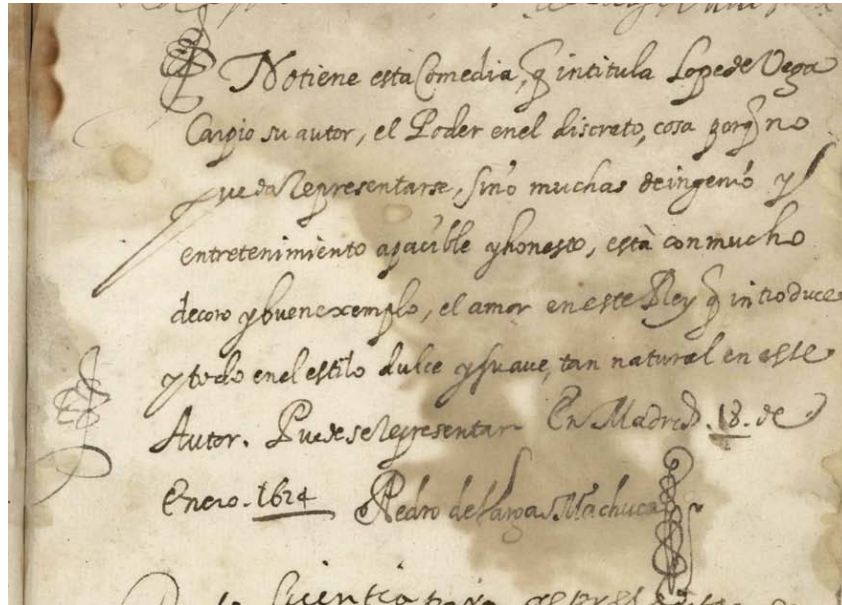 No tiene esta Comedia, q̃ intitula Lope de Vega
Carpio su autor, el Poder en el discreto, cosa porq̃ no
pueda Representarse, sino muchas de ingenio y
entretenimiento apacible y honesto, està con mucho
decoro y buen exemplo, el amor en este Rey q̃ introduce
y todo en el estilo dulce y suave, tan natural en este
Autor. Puede se Representar En Madrid. 18. de
Enero. 1624 Pedro de Vargas Machuca